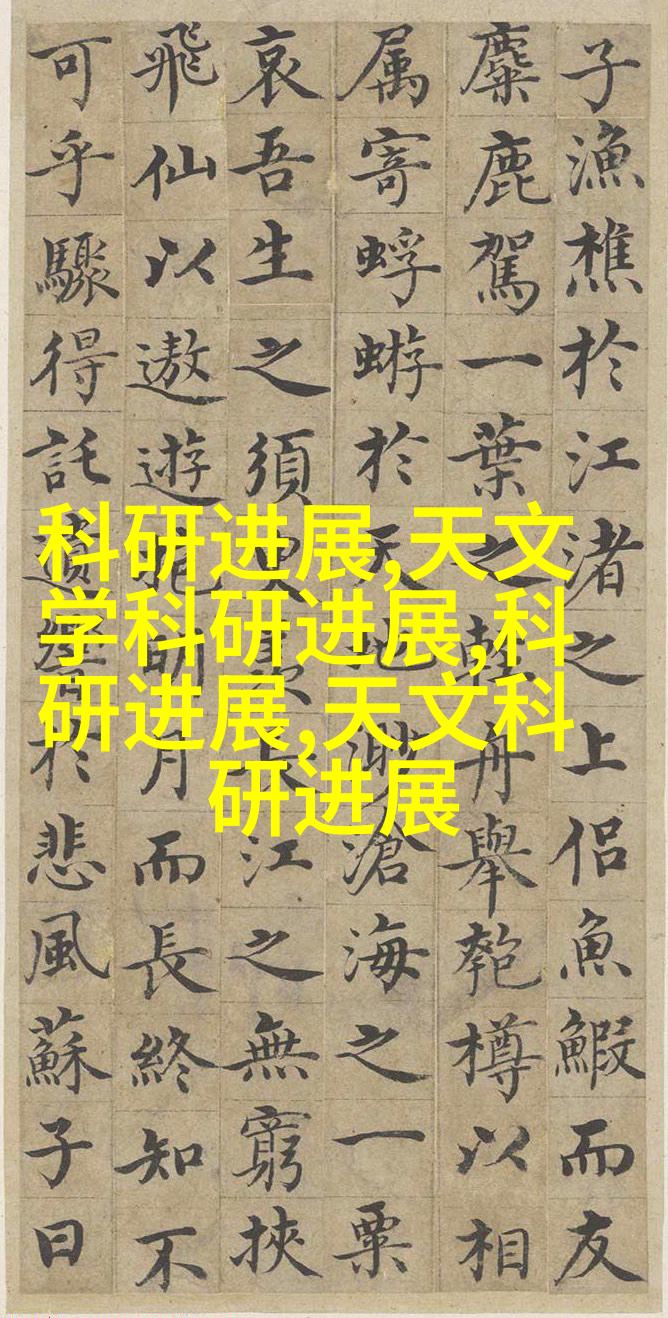 子漁樵於江渚之上侶魚鰕而友
麋鹿駕一葉之輕舟舉匏樽以相
属寄蜉蝣於天地渺滄海之一粟
哀吾生之須臾羡長江之無窮挾
飛仙以遨遊抱明月而長終知不
可乎驟得託遺響於悲風蘇子曰
科研进展,天文
学科研进展,科
研进展,天文科
研进展